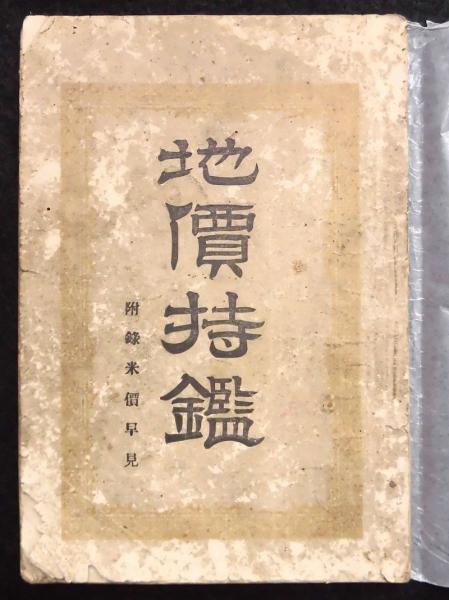 地價持鑑
附錄米價早見